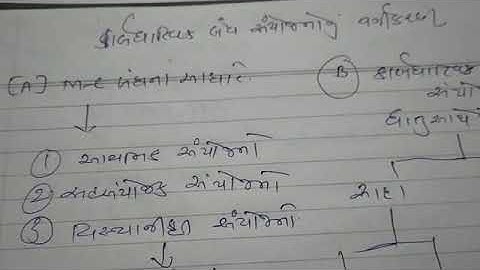 કાર્બધાત્વિક બંધ સંયોજનોનું વર્ગીકરણ
(A) M-C બંધના આધારે.
(B) કાર્બધાત્વિક
સંયો
ધાતુ સાથે
① આયનિક સંયોજનો
② સહસંયોજક સંયોજનો
સાદા
③ વિસ્થાનીકૃત સંયોજનો